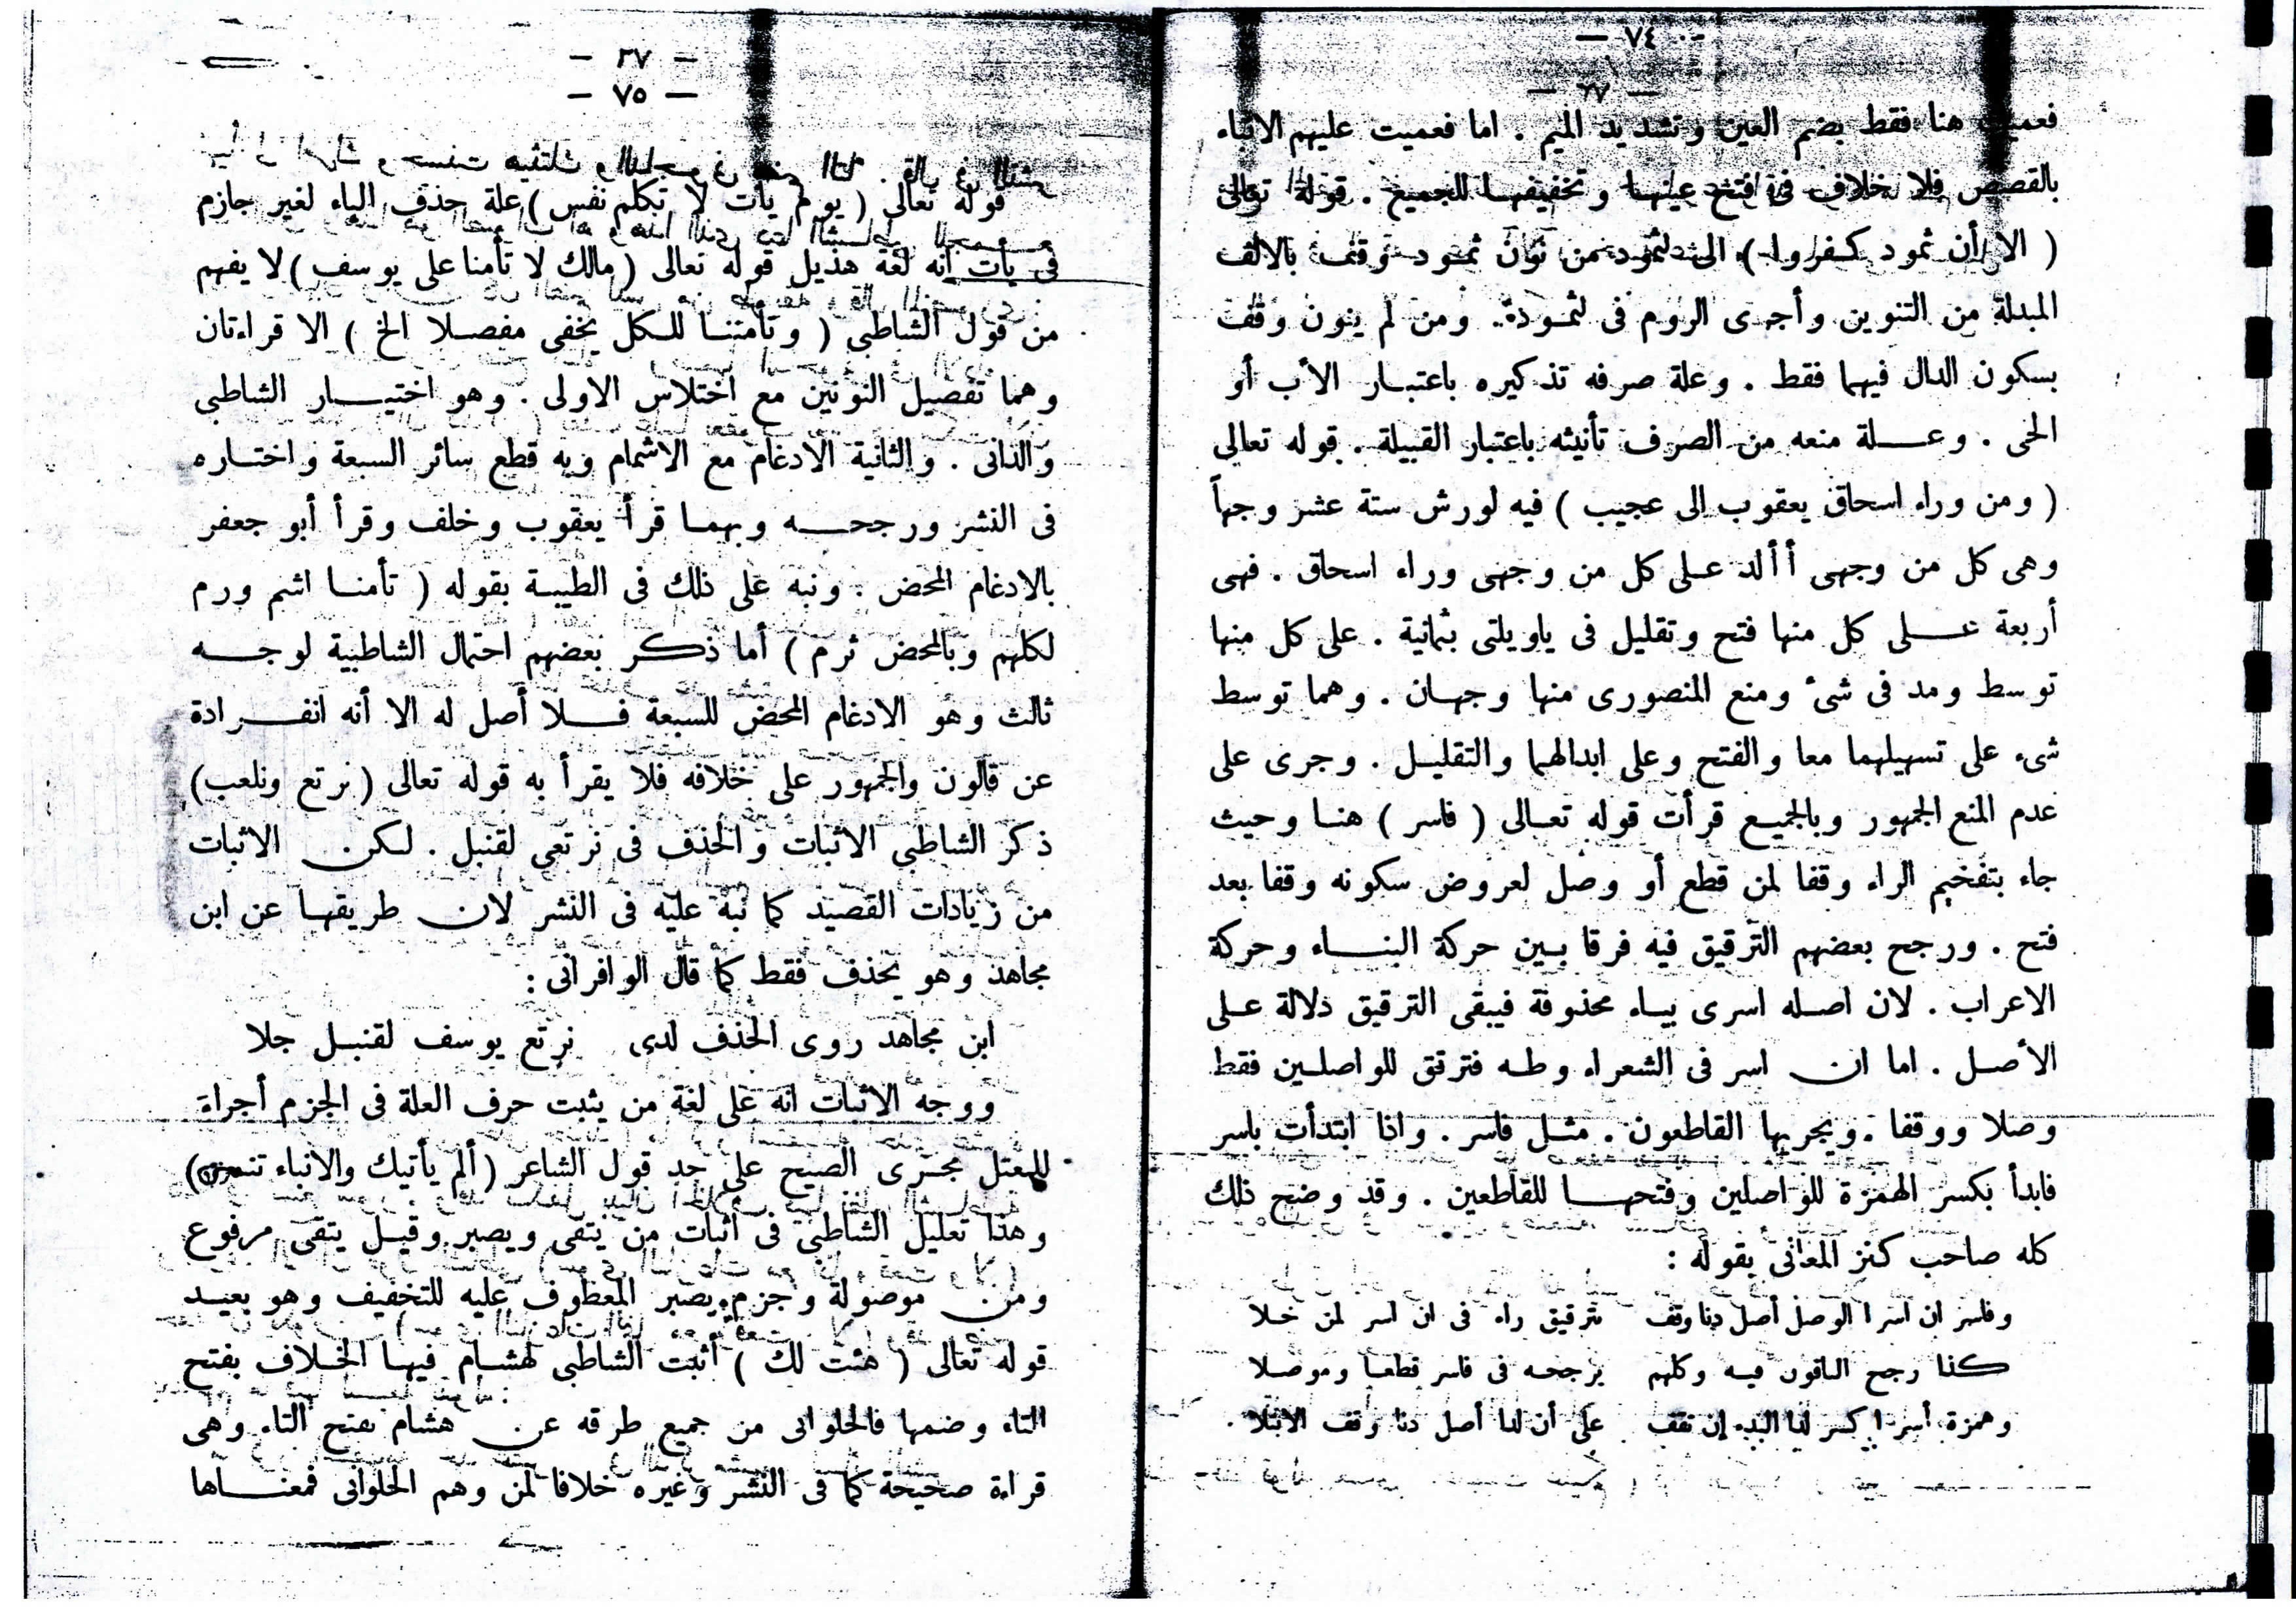 — ٧٤ —
فعميت هنا فقط بضم العين وتشديد الميم . اما فعميت عليهم الانباء
بالقصص فلا خلاف فى فتح عينها وتخفيفها للجميع . قوله تعالى
( الا أن ثمود كفروا ) الى لثمود من نون ثمود وقف بالالف
المبدلة من التنوين وأجرى الروم فى لثمود . ومن لم ينون وقف
بسكون الدال فيهما فقط . وعلة صرفه تذكيره باعتبار الأب أو
الحى . وعلة منعه من الصرف تأنيثه باعتبار القبيلة . قوله تعالى
( ومن وراء اسحاق يعقوب الى عجيب ) فيه لورش ستة عشر وجهاً
وهى كل من وجهى أألد على كل من وجهى وراء اسحاق . فهى
أربعة على كل منها فتح وتقليل فى ياويلتى بثمانية . على كل منها
توسط ومد فى شىء ومنع المنصورى منها وجهان . وهما توسط
شىء على تسهيلهما معا والفتح وعلى ابدالهما والتقليل . وجرى على
عدم المنع الجمهور وبالجميع قرأت قوله تعالى ( فاسر ) هنا وحيث
جاء بتفخيم الراء وقفا لمن قطع أو وصل لعروض سكونه وقفا بعد
فتح . ورجح بعضهم الترقيق فيه فرقا بين حركة البناء وحركة
الاعراب . لان اصله اسرى بياء محذوفة فيبقى الترقيق دلالة على
الأصل . اما ان اسر فى الشعراء وطه فترقق للواصلين فقط
وصلا ووقفا . ويجريها القاطعون . مثل فاسر . واذا ابتدأت باسر
فابدأ بكسر الهمزة للواصلين وفتحها للقاطعين . وقد وضح ذلك
كله صاحب كنز المعانى بقوله :
وفاسر ان اسر ا الوصل أصل دنا وقف بترقيق راء فى ان اسر لمن خلا
كذا رجح الباقون فيه وكلهم يرجحه فى فاسر قطعا وموصلا
وهمزة أسر اكسر لدا البدء إن تقف على أن لدا أصل دنا وقف الابتلا .
— ٣٧ —
— ٧٥ —
قوله تعالى ( يوم يأت لا تكلم نفس ) علة حذف الياء لغير جازم
فى يأت انه لغة هذيل قوله تعالى ( مالك لا تأمنا على يوسف ) لا يفهم
من قول الشاطبى ( وتأمننا للكل يخفى مفصلا الخ ) الا قراءتان
وهما تفصيل النونين مع اختلاس الاولى . وهو اختيار الشاطبى
والدانى . والثانية الادغام مع الاشمام وبه قطع سائر السبعة واختاره
فى النشر ورجحه وبهما قرأ يعقوب وخلف وقرأ أبو جعفر
بالادغام المحض . ونبه على ذلك فى الطيبة بقوله ( تأمنا اشم ورم
لكلهم وبالمحض ثرم ) أما ذكر بعضهم احتمال الشاطبية لوجه
ثالث وهو الادغام المحض للسبعة فلا أصل له الا أنه انفرادة
عن قالون والجمهور على خلافه فلا يقرأ به قوله تعالى ( نرتع ونلعب )
ذكر الشاطبى الاثبات والحذف فى نرتعى لقنبل . لكن الاثبات
من زيادات القصيد كما نبه عليه فى النشر لان طريقها عن ابن
مجاهد وهو يحذف فقط كما قال الوافرانى :
ابن مجاهد روى الحذف لدى نرتع يوسف لقنبل جلا
ووجه الاثبات انه على لغة من يثبت حرف العلة فى الجزم أجراء
للمعتل مجرى الصيح على حد قول الشاعر ( ألم يأتيك والانباء تنمى )
وهذا تعليل الشاطبى فى اثبات من يتقى ويصبر وقيل يتقى مرفوع
ومن موصولة وجزم ويصبر المعطوف عليه للتخفيف وهو بعيد
قوله تعالى ( هئت لك ) أثبت الشاطبى لهشام فيها الخلاف بفتح
التاء وضمها فالحلوانى من جميع طرقه عن هشام بفتح التاء وهى
قراءة صحيحة كما فى النشر وغيره خلافا لمن وهم الحلوانى فمعناها